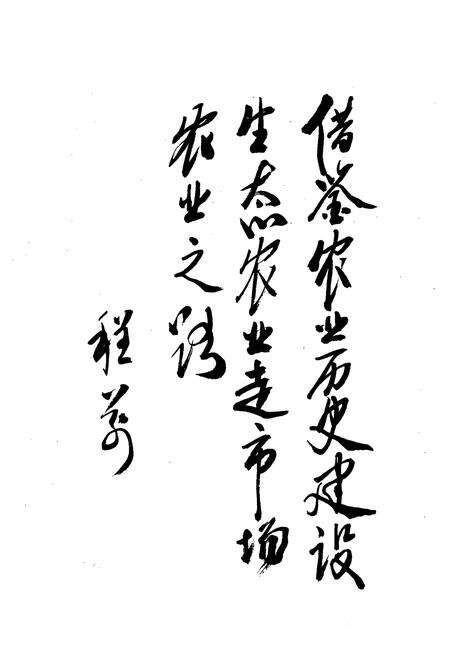 借鉴农业历史建设
生态农业走市场
农业之路
程前